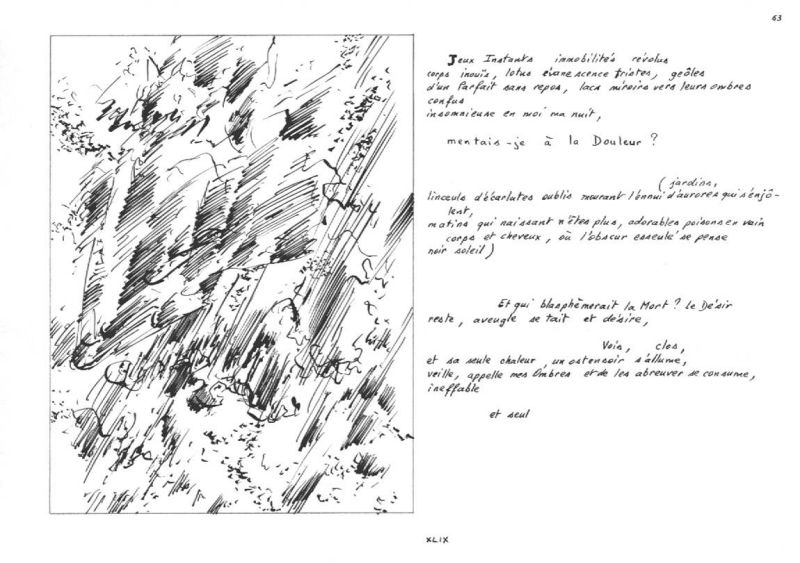 63
Jeux Instants immobilités révolus
corps inouïs, lotus évanescence tristes, geôles
d'un Parfait sans repos, lacs miroirs vers leurs ombres
confus
insomnieuse en moi ma nuit,
mentais-je à la Douleur ?
( jardins,
linceuls d'écarlates oublis mourant l'ennui d'aurores qui s'enjô-
lent,
matins qui naissant n'êtes plus, adorables poisons en vain
corps et cheveux, où l'obscur esseulé se pense
noir soleil )
Et qui blasphèmerait la Mort ? le Désir
reste, aveugle se tait et désire,
Vois, clos,
et sa seule chaleur, un ostensoir s'allume,
veille, appelle mes Ombres et de les abreuver se consume,
ineffable
et seul
XLIX